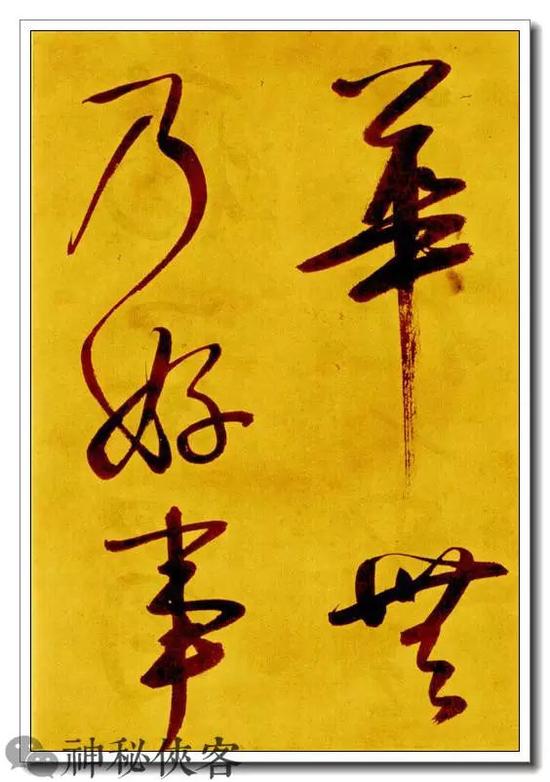 華無
乃好事
神秘俠客